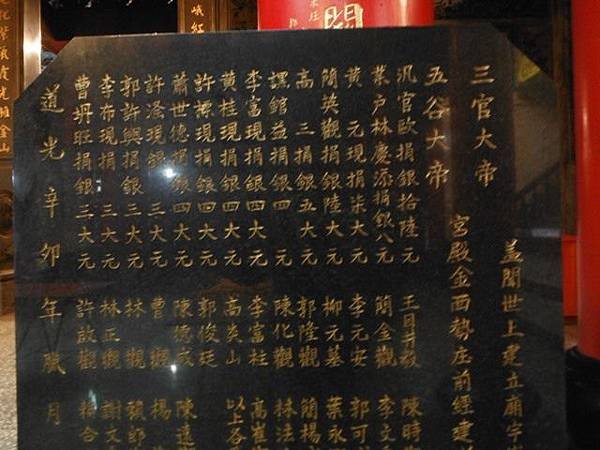 三官大帝
五谷大帝
蓋聞世上建立廟宇
宮殿金西勢庄前經建
汎官歐捐銀拾陸元 王 陳時
業戶林慶添捐銀八元 簡金觀 李文
黃元現捐柒大元 李元安 郭可
簡英觀捐銀陸大元 柳元基 葉永
高三捐銀五大元 郭隆觀 簡楊
課館益捐銀四元 陳化觀 林法
李富現捐銀四大元 李富桂 高崔
黃桂現捐銀四大元 高炎山 以上各
許標現捐銀四大元 郭俊廷
蕭世德捐銀四大元 陳德成 陳遠
許泽現銀三大元 曹觀 楊
郭許興捐銀三大元 林觀
李布現捐銀三大元 林正觀 謝文
曹坍旺捐銀三大元 許啟觀 合
道光辛卯年臘月